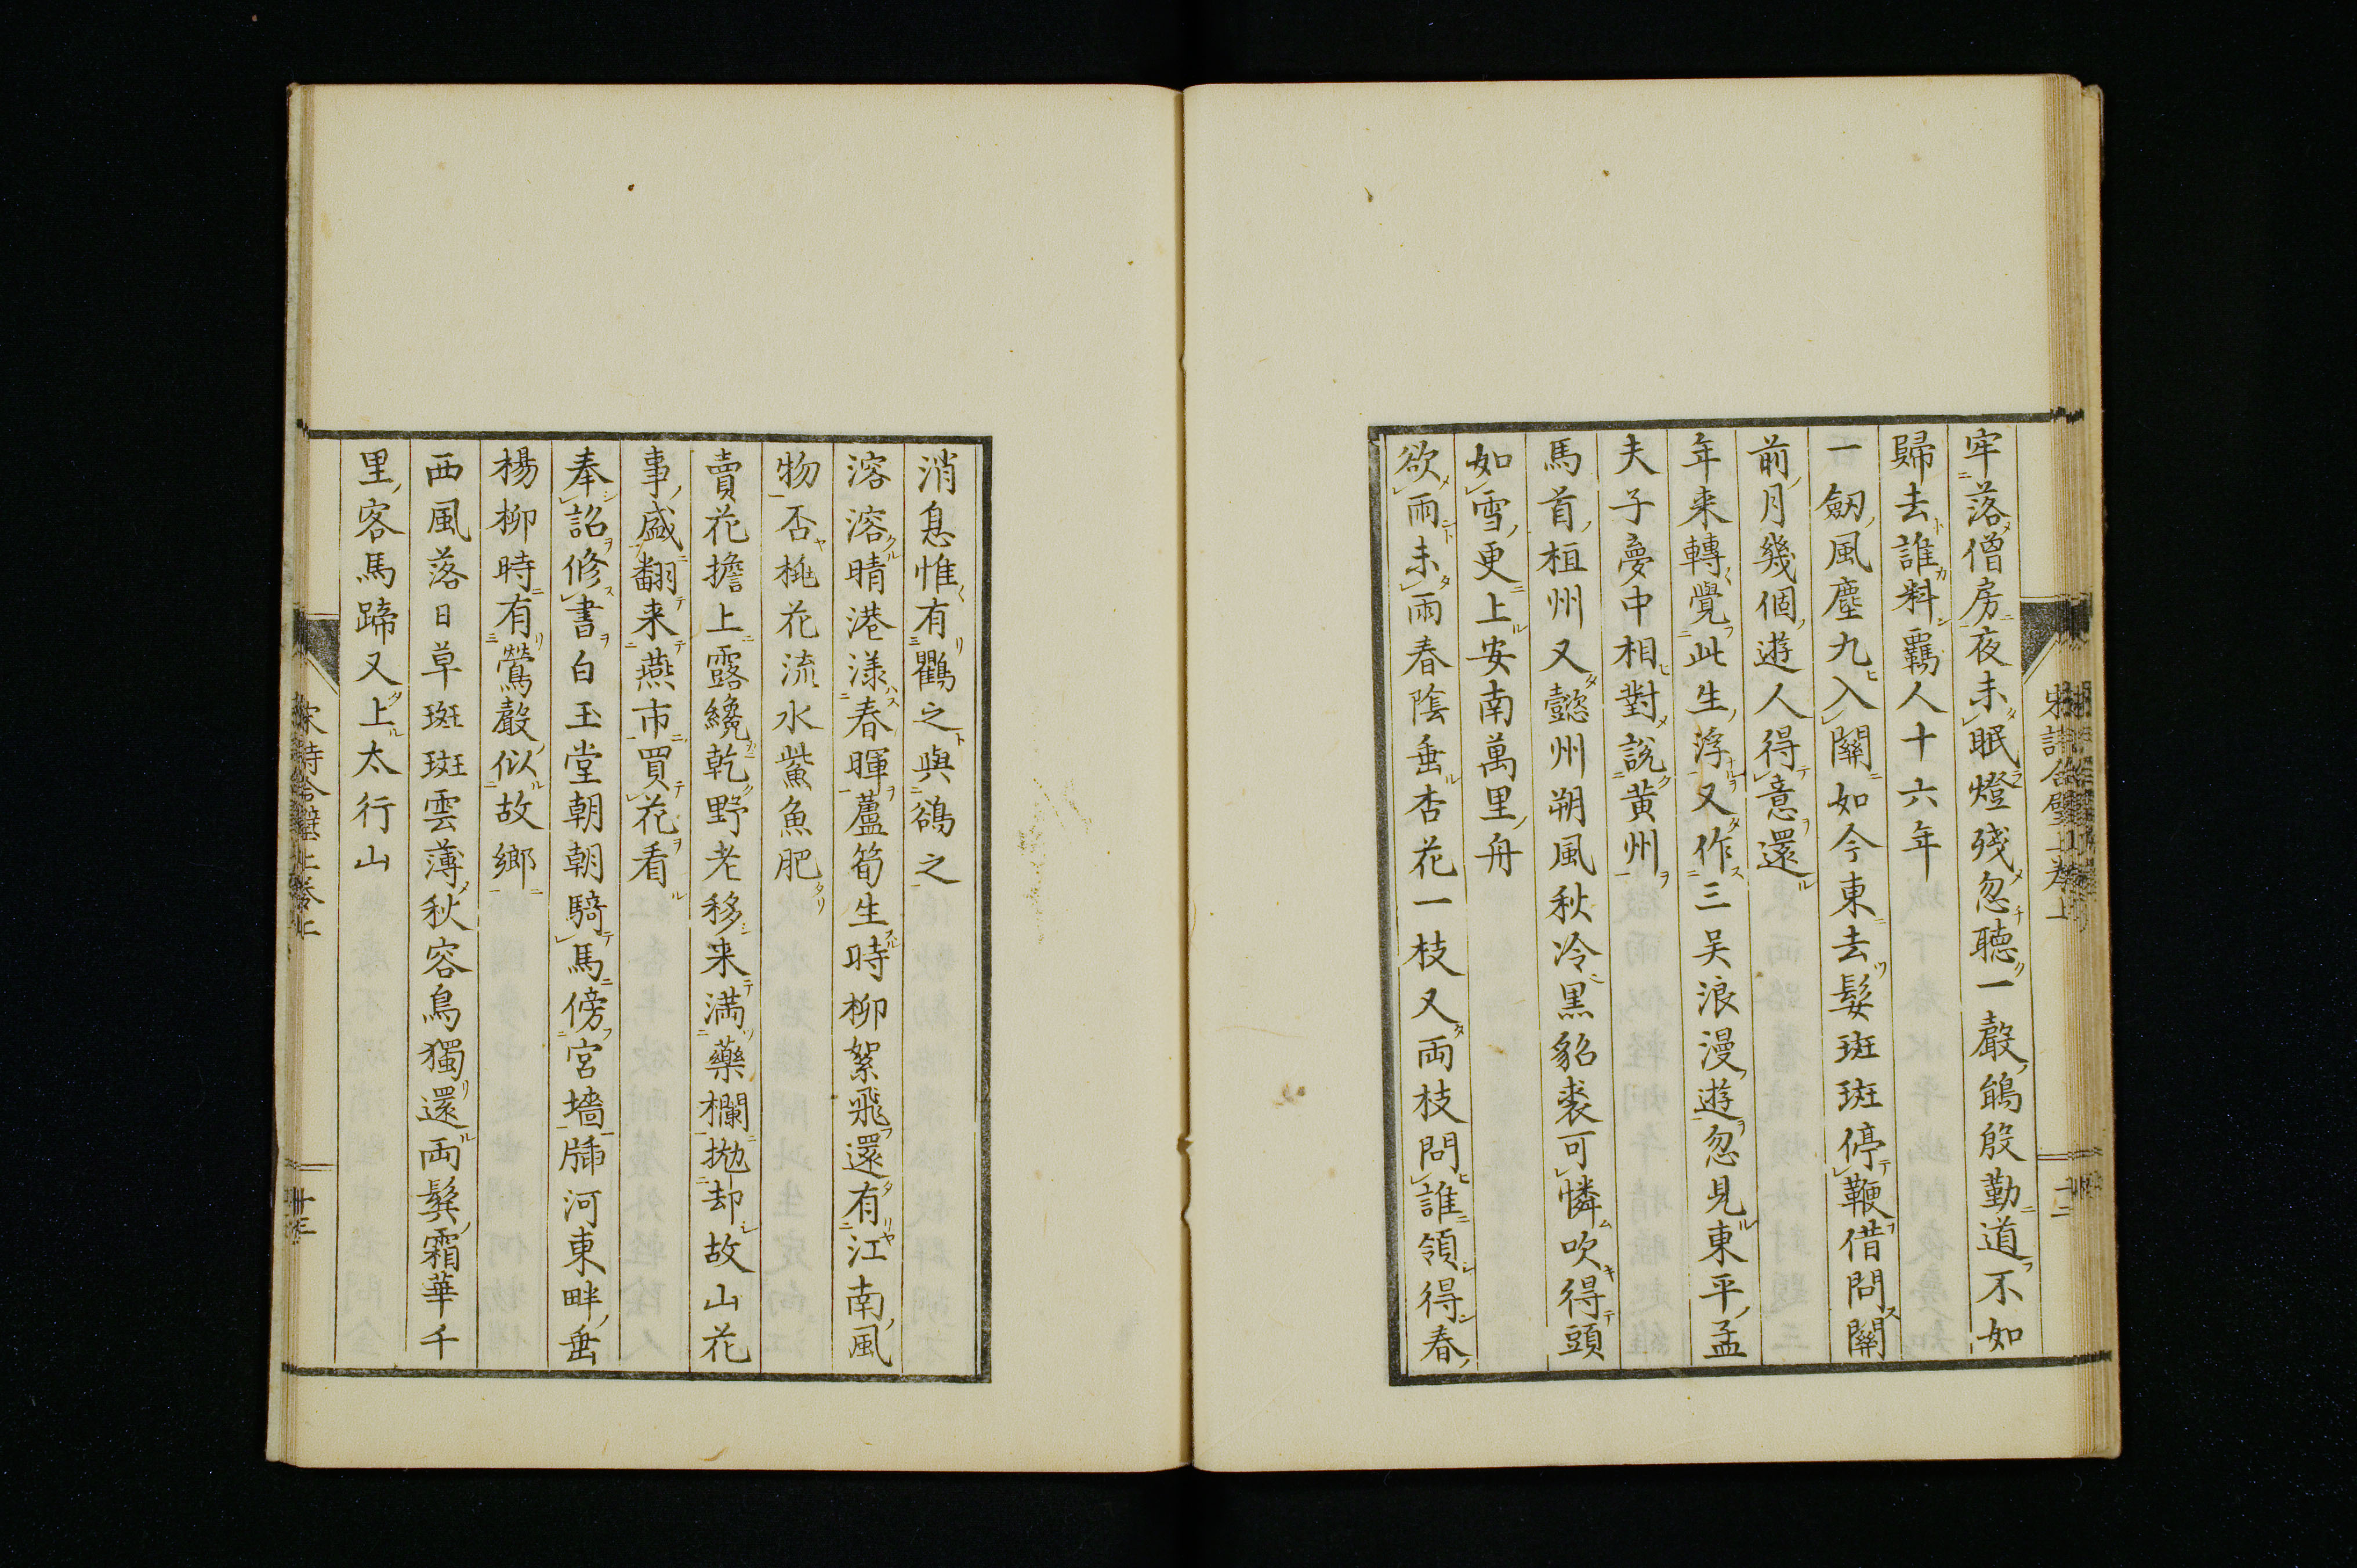 牢落僧房夜未眠燈殘忽聴一聲鵑殷勤道不如
歸去誰料羈人十六年
一劔風塵九入關如今東去髮斑斑停鞭借問關
前月幾個遊人得意還
年来轉覺此生浮又作三吴浪漫遊忽見東平孟
夫子夢中相對說黄州
馬首桓州又懿州朔風秋冷黒貂裘可憐吹得頭
如雪更上安南萬里舟
欲雨未雨春陰垂杏花一枝又両枝問誰領得春
消息惟有鸜之與鵒之
溶溶晴港漾春暉蘆筍生時柳絮飛還有江南風
物否桃花流水鮆魚肥
賣花擔上露纔乾野老移来満藥欄拋却故山花
事盛翻来燕市買花看
奉詔修書白玉堂朝朝騎馬傍宮墻牐河東畔垂
楊柳時有鶯聲似故鄉
西風落日草斑斑雲薄秋容鳥獨還両鬂霜華千
里客馬蹄又上太行山